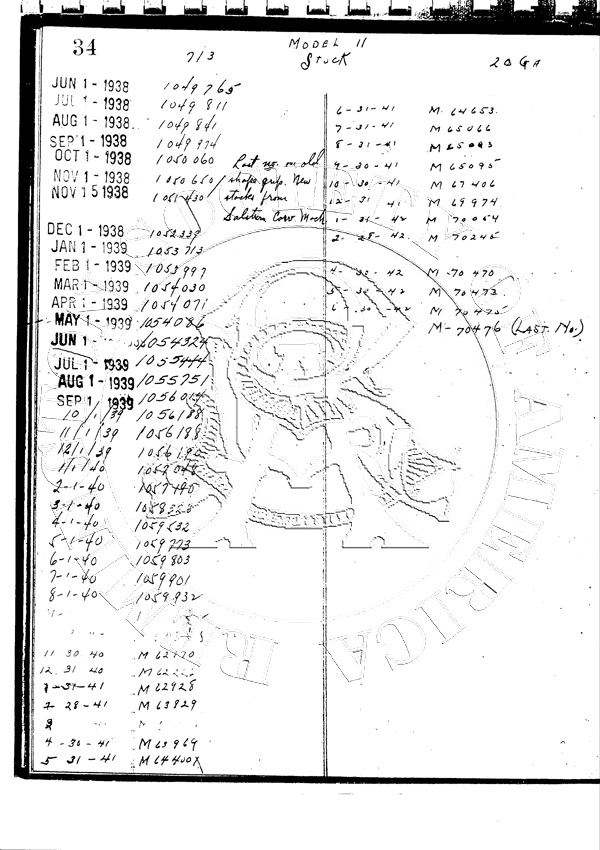 34
713
MODEL 11
STOCK
20 GA
JUN 1 - 1938 1049765
JUL 1 - 1938 1049811
AUG 1 - 1938 1049841
SEP 1 - 1938 1049974
OCT 1 - 1938 1050060
NOV 1 - 1938 1050650
NOV 15 1938 1051430
Last no. on old
shape grip. New
stocks from
DEC 1 - 1938 1052339
JAN 1 - 1939 1053713
FEB 1 - 1939 1053997
MAR 1 - 1939 1054030
APR 1 - 1939 1054071
MAY 1 - 1939 1054086
JUN 1 - 1054324
JUL 1 - 1939 1055444
AUG 1 - 1939 1055751
SEP 1 1939 1056014
10/1/39 1056188
11/1/39 1056188
12/1/39 1056190
1/1/40 1057048
2-1-40 1057190
3-1-40
4-1-40 1059532
5-1-40 1059773
6-1-40 1059803
7-1-40 1059901
8-1-40 1059932
11 30 40 M 62170
12 31 40
1-31-41 M 62928
2 28-41 M 63829
4-30-41 M 63969
5 31-41
6-31-41 M 64653
7-31-41 M 65066
8-31-41 M 65093
9-30-41 M 65095
10-30-41 M 67406
12-31 41 M 69974
1-31-42 M 70064
2-28-42 M 70245
4-30-42 M 70470
5-30-42 M 70473
6-30-42 M 70475
M-70476 (LAST NO.)
REMINGTON SOCIETY OF AMERICA